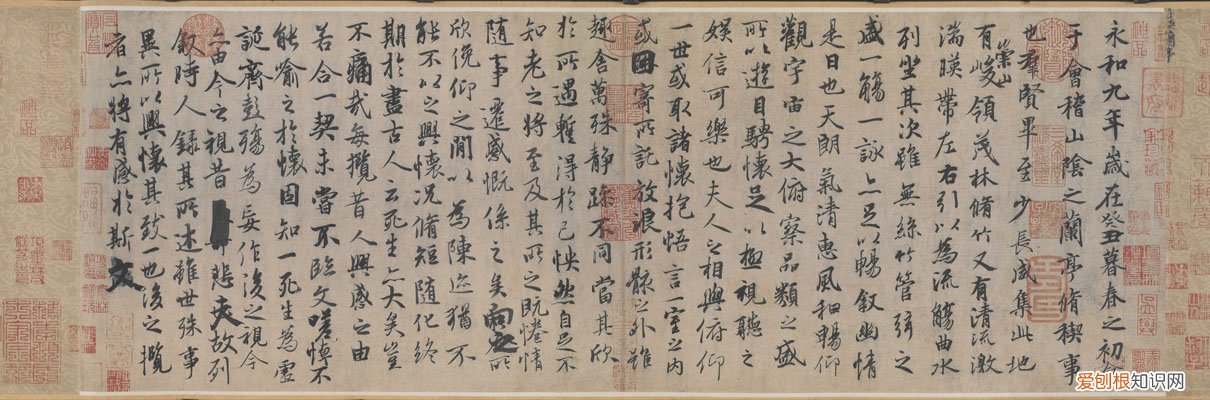 永和九年歲在癸丑暮春之初會
于會稽山陰之蘭亭脩稧事
也羣賢畢至少長咸集此地
有崇山峻領茂林脩竹又有清流激
湍暎帶左右引以為流觴曲水
列坐其次雖無絲竹管弦之
盛一觴一詠亦足以暢敘幽情
是日也天朗氣清惠風和暢仰
觀宇宙之大俯察品類之盛
所以遊目騁懷足以極視聽之
娛信可樂也夫人之相與俯仰
一世或取諸懷抱悟言一室之內
或因寄所託放浪形骸之外雖
趣舍萬殊靜躁不同當其欣
於所遇暫得於己怏然自足不
知老之將至及其所之既惓情
隨事遷感慨係之矣向之所
欣俛仰之閒以為陳迹猶不
能不以之興懷況脩短隨化終
期於盡古人云死生亦大矣豈
不痛哉每攬昔人興感之由
若合一契未嘗不臨文嗟悼不
能喻之於懷固知一死生為虛
誕齊彭殤為妄作後之視今
亦由今之視昔悲夫故列
敘時人錄其所述雖世殊事
異所以興懷其致一也後之攬
者亦將有感於斯文
爱刨根知识网
www.baogenzhishi.com